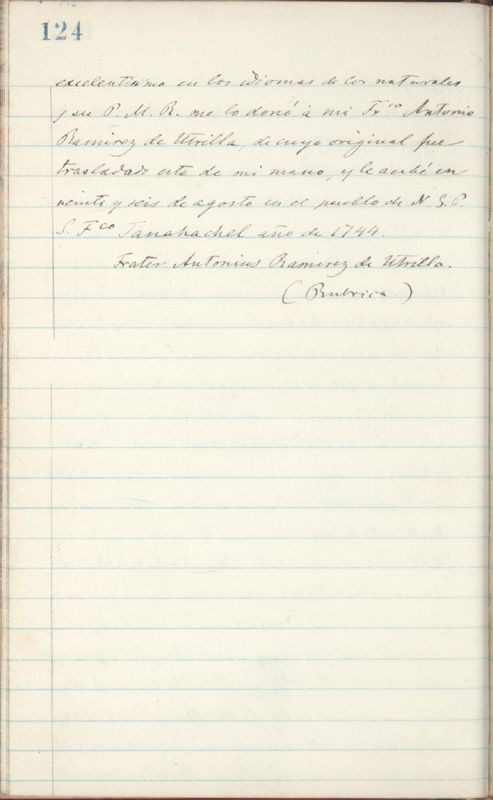 124
excelentisimo en los idiomas de los naturales
y su P. M. R. me lo donó á mi Fr.co Antonio
Ramirez de Utrilla, de cuyo original fue
trasladado este de mi mano, y le acabé en
veinte y seis de agosto en el pueblo de N. S. P.
S. Fco Panahachel año de 1744.
Frater Antonius Ramirez de Utrilla.
(Rubrica.)